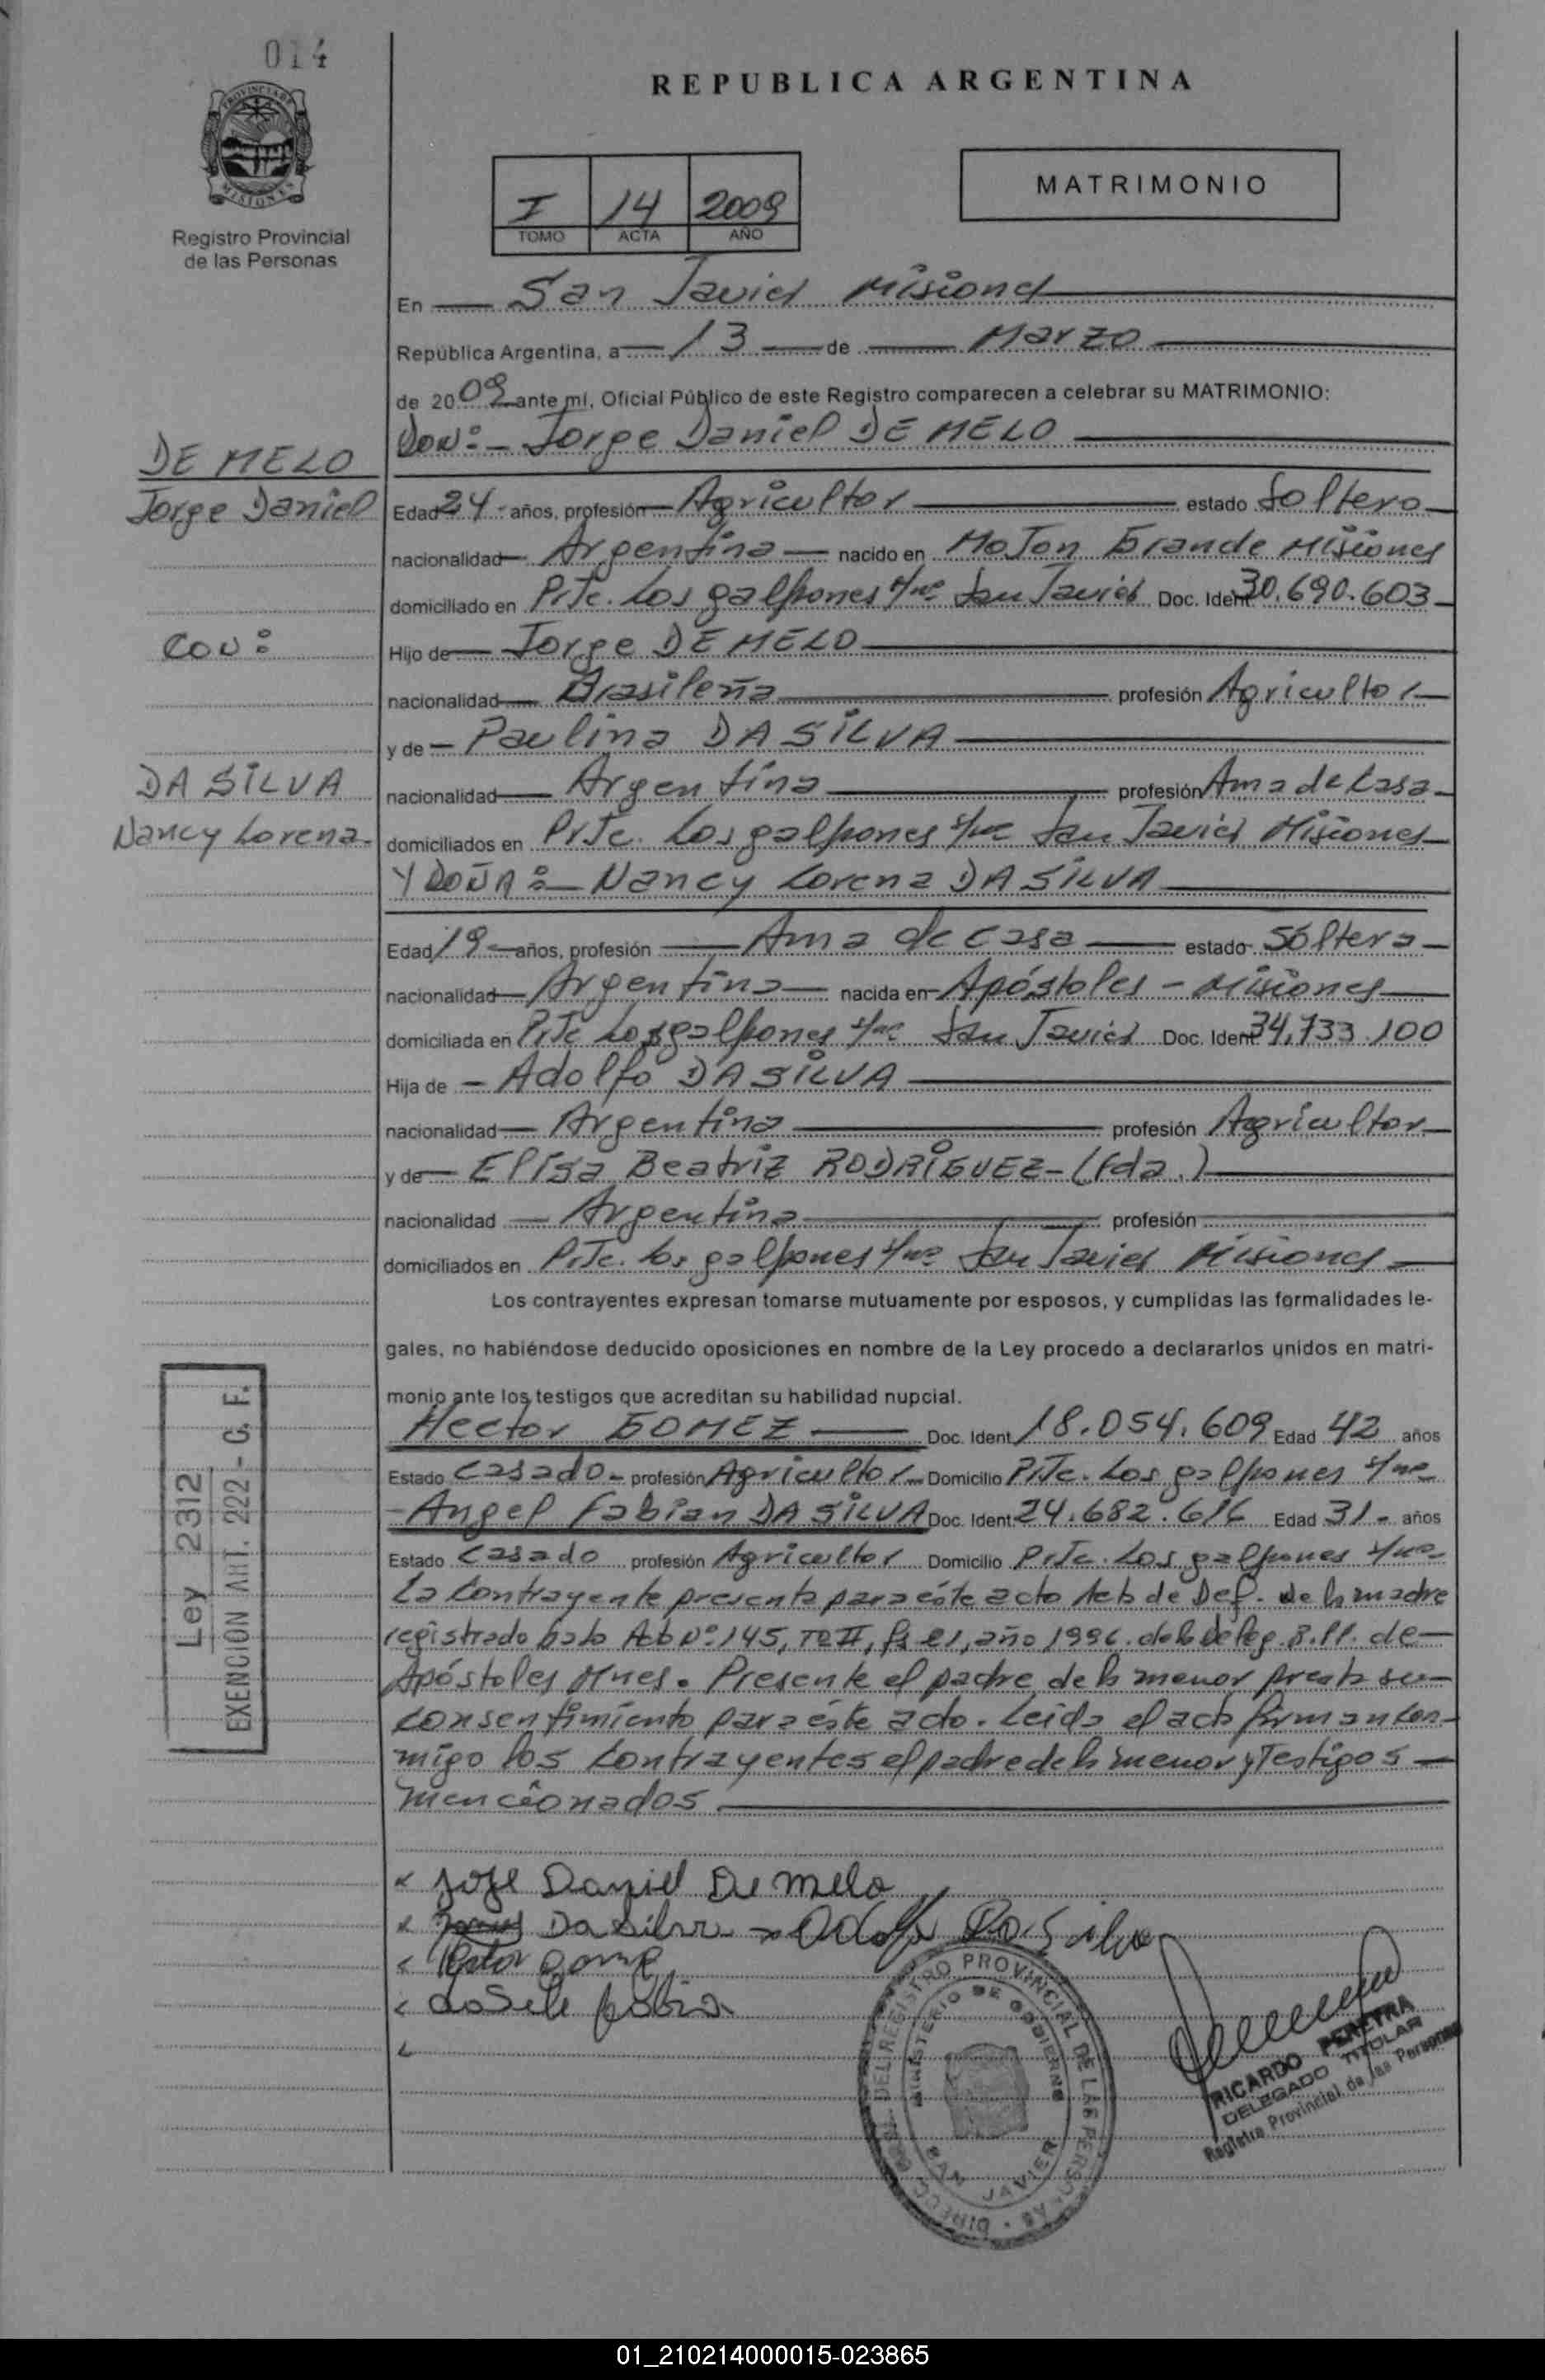 014
REPUBLICA ARGENTINA
PROVINCIA DE
MISIONES
Registro Provincial
de las Personas
MATRIMONIO
I 14 2009
TOMO ACTA AÑO
En San Javier Misiones
República Argentina, a 13 de Marzo
de 2009 ante mí, Oficial Público de este Registro comparecen a celebrar su MATRIMONIO:
DON:- Jorge Daniel DE MELO
DE MELO
Jorge Daniel
CON:
DA SILVA
Nancy Lorena.
Edad 24 - años, profesión Agricultor estado Soltero
nacionalidad Argentina nacido en Mojon Grande Misiones
domiciliado en Pje. Los galpones San Javier Doc. Ident 30.690.603
Hijo de Jorge DE MELO
nacionalidad Brasileña profesión Agricultor
y de - Paulina DA SILVA
nacionalidad Argentina profesión Ama de Casa
domiciliados en Pje. Los galpones San Javier Misiones
Y DOÑA:- Nancy Lorena DA SILVA
Edad 19 años, profesión Ama de casa estado Soltera
nacionalidad Argentina nacida en Apóstoles - Misiones
domiciliada en Pje Los galpones San Javier Doc. Ident 34.733.100
Hija de - Adolfo DA SILVA
nacionalidad Argentina profesión Agricultor
y de Elisa Beatriz RODRÍGUEZ - (fda.)
nacionalidad Argentina profesión
domiciliados en Pje. los galpones San Javier Misiones
Los contrayentes expresan tomarse mutuamente por esposos, y cumplidas las formalidades le-
gales, no habiéndose deducido oposiciones en nombre de la Ley procedo a declararlos unidos en matri-
monio ante los testigos que acreditan su habilidad nupcial.
Hector GOMEZ Doc. Ident. 18.054.609 Edad 42 años
Estado Casado - profesión Agricultor Domicilio Pje. Los galpones
- Angel Fabian DA SILVA Doc. Ident. 24.682.616 Edad 31 - años
Estado Casado profesión Agricultor Domicilio Pje. Los galpones
La Contrayente presenta para éste acto Acta de Def. de la madre
registrado bajo Acta Nº 145, Tº II, año 1996. de la Deleg. de
Apóstoles Mnes. Presente el padre de la menor presta su
consentimiento para éste acto. Leida el acta firman con
migo los Contrayentes el padre de la menor y Testigos
mencionados
Ley 2312
EXENCION ART. 222 - C. F.
Jorge Daniel De melo
Da Silva Adolfo Da Silva
Hector gomez
da Silva fabian
DIRECC. GRAL. DEL REGISTRO PROVINCIAL DE LAS PERSONAS
MINISTERIO DE GOBIERNO
SAN JAVIER
RICARDO PEREYRA
DELEGADO TITULAR
Registro Provincial de las Personas
01_210214000015-023865